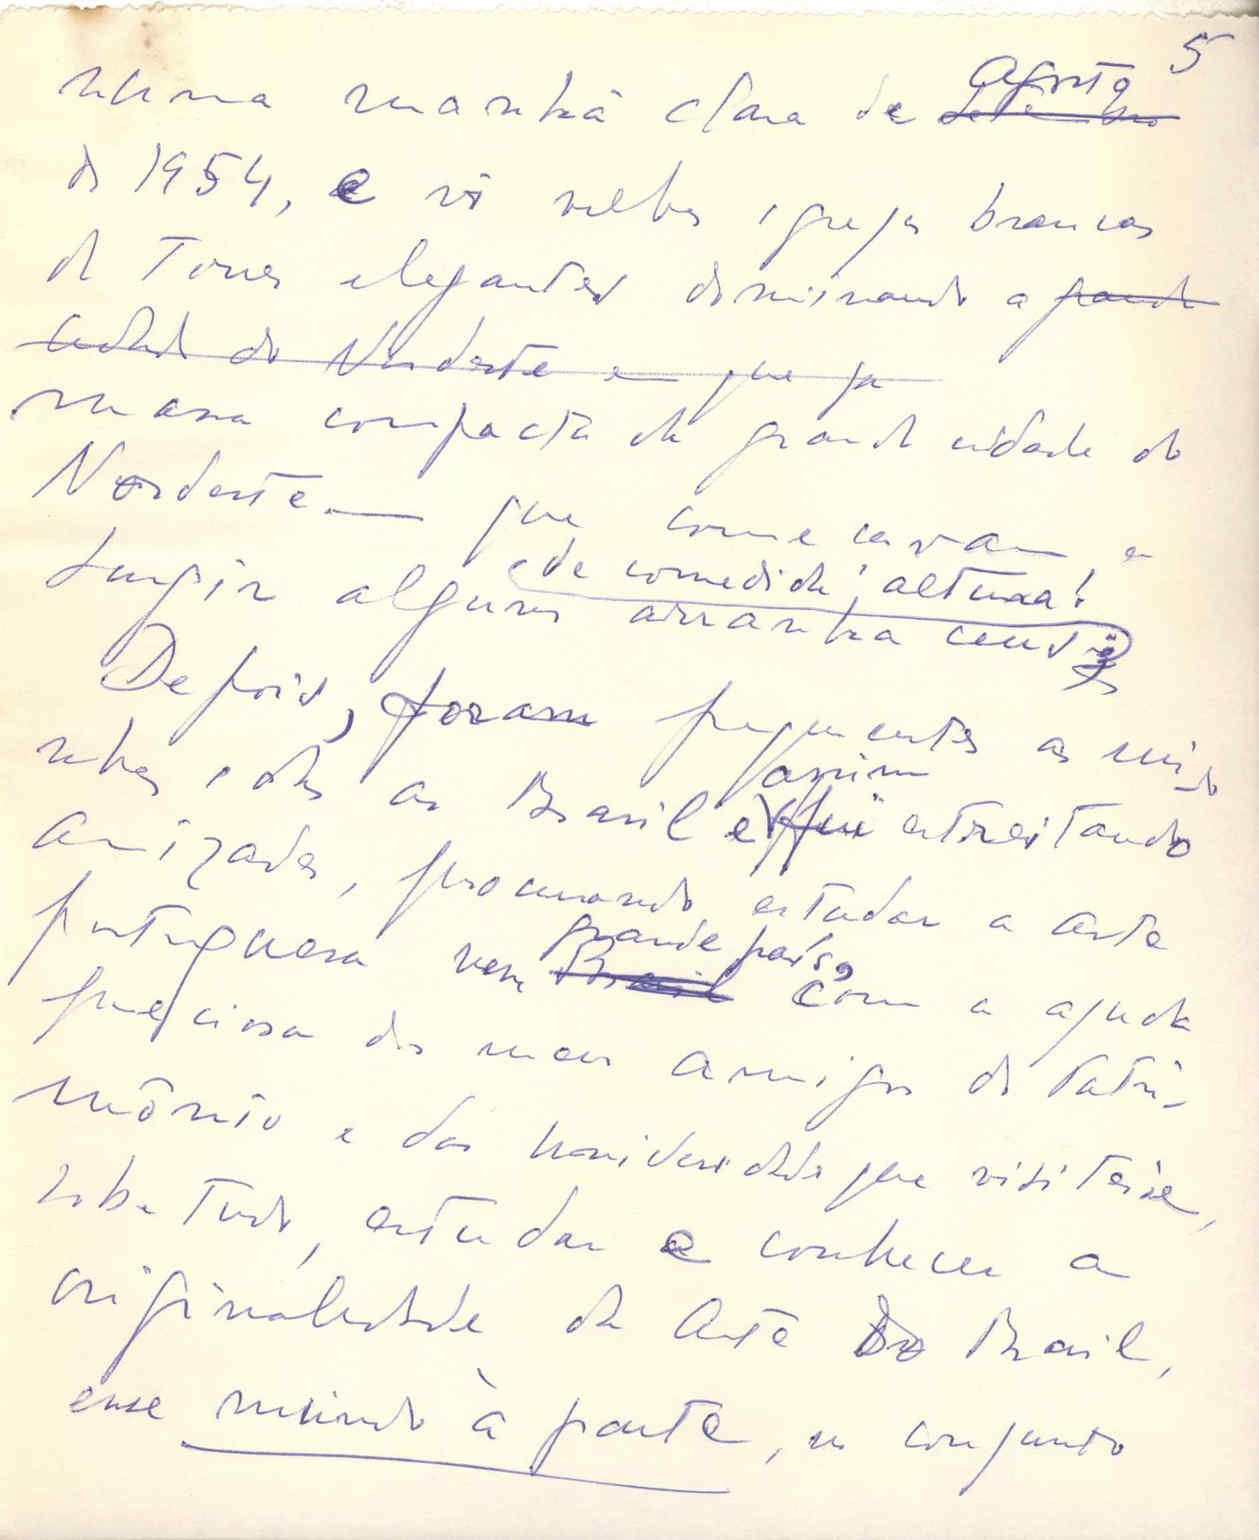 5
numa manhã clara de Agosto
Setembro
de 1954, e vi velhas igrejas brancas
de Torres elegantes dominando a grande
cidade do Nordeste em que já
massa compacta da grande cidade do
Nordeste — que começavam a
(de comedida altura!
surgir alguns arranha ceus
Depois, foram frequentes as mi-
nhas idas ao Brasil e assim fui estreitando
amizades, procurando estudar a arte
portuguesa nesse grande país,
Brasil com a ajuda
preciosa dos meus amigos do Patri-
mónio e das Universidades que visitei e,
sobre tudo, estudar e conhecer a
originalidade da Arte do Brasil,
esse mundo à parte, no conjunto